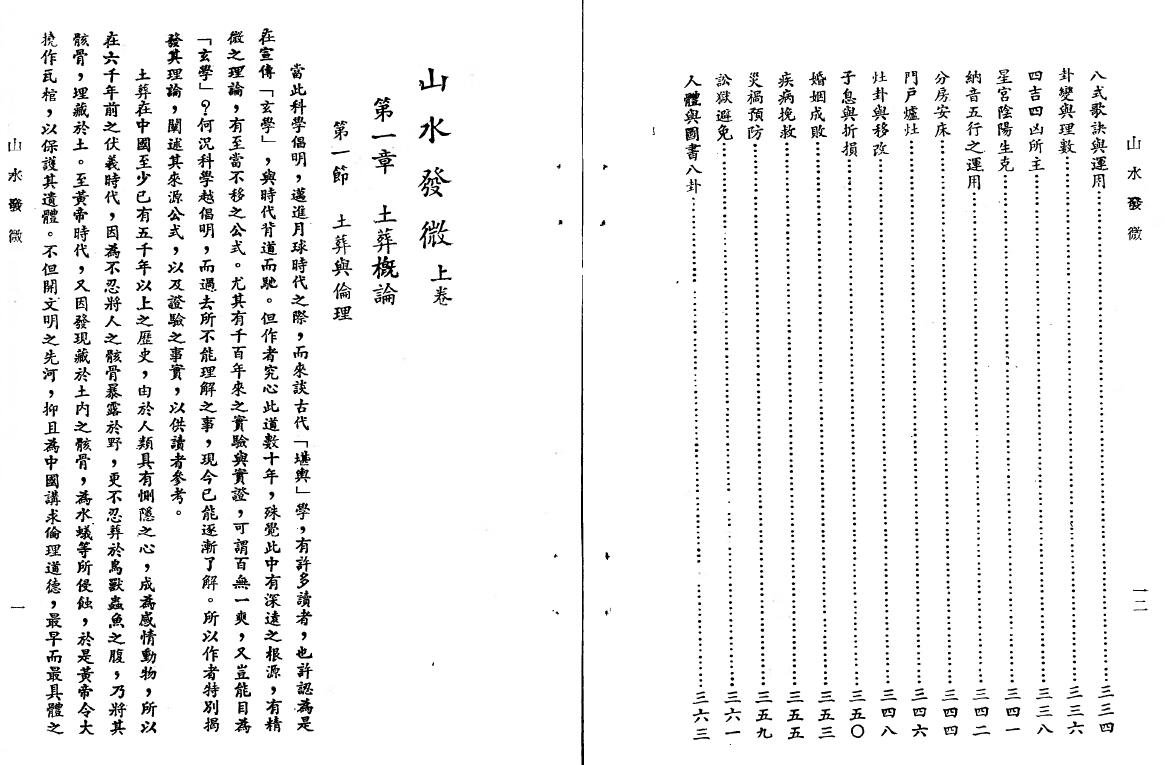 山水發微
一二
八式歌訣與運用……三三四
卦變與理數……三三六
四吉四凶所主……三三八
星宮陰陽生克……三四一
納音五行之運用……三四二
分房安床……三四四
門戶爐灶……三四六
灶卦與移改……三四八
子息與折損……三五〇
婚姻成敗……三五三
疾病挽救……三五五
災禍預防……三五九
訟獄避免……三六一
人體與圖書八卦……三六三
山水發微 上卷
第一章 土葬概論
第一節 土葬與倫理
當此科學倡明，邁進月球時代之際，而來談古代「堪輿」學，有許多讀者，也許認為是
在宣傳「玄學」，與時代背道而馳。但作者究心此道數十年，殊覺此中有深遠之根源，有精
微之理論，有至當不移之公式。尤其有千百年來之實驗與實證，可謂百無一爽，又豈能目為
「玄學」？何況科學越倡明，而過去所不能理解之事，現今已能逐漸了解。所以作者特別揭
發其理論，闡述其來源公式，以及證驗之事實，以供讀者參考。
土葬在中國至少已有五千年以上之歷史，由於人類具有惻隱之心，成為感情動物，所以
在六千年前之伏羲時代，因為不忍將人之骸骨暴露於野，更不忍葬於鳥獸蟲魚之腹，乃將其
骸骨，埋藏於土。至黃帝時代，又因發現藏於土內之骸骨，為水蟻等所侵蝕，於是黃帝令大
撓作瓦棺，以保護其遺體。不但開文明之先河，抑且為中國講求倫理道德，最早而最具體之
山水發微
一